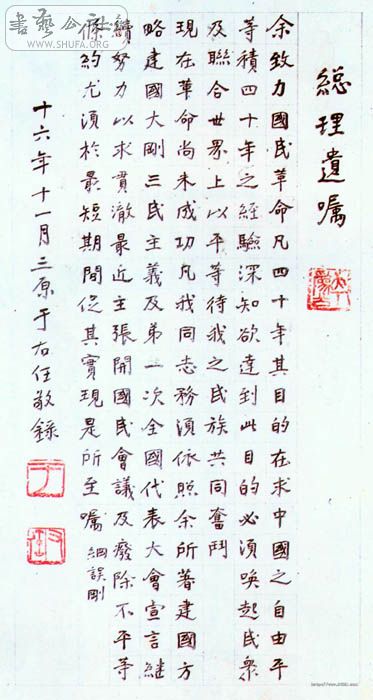 書藝公社
WWW.SHUFA.ORG
總理遺囑
余致力國民革命凡四十年其目的在求中國之自由平
等積四十年之經驗深知欲達到此目的必須喚起民衆
及聯合世界上以平等待我之民族共同奮鬥
現在革命尚未成功凡我同志務須依照余所著建國方
略建國大剛三民主義及弟一次全國代表大會宣言継
續努力以求貫澈最近主張開國民會議及廢除不平等
條約尤須於最短期間促其實現是所至囑 綱誤剛
十六年十一月三原于右任敬錄